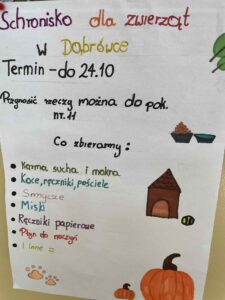 Schronisko dla zwierząt
w Dąbrówce
Termin - do 24.10
Przynosić rzeczy można do pok.
nr. 11
Co zbieramy:
Karma sucha i mokra
Koce, ręczniki, pościele
Smycze
Miski
Ręczniki papierowe
Płyn do naczyń
I inne =